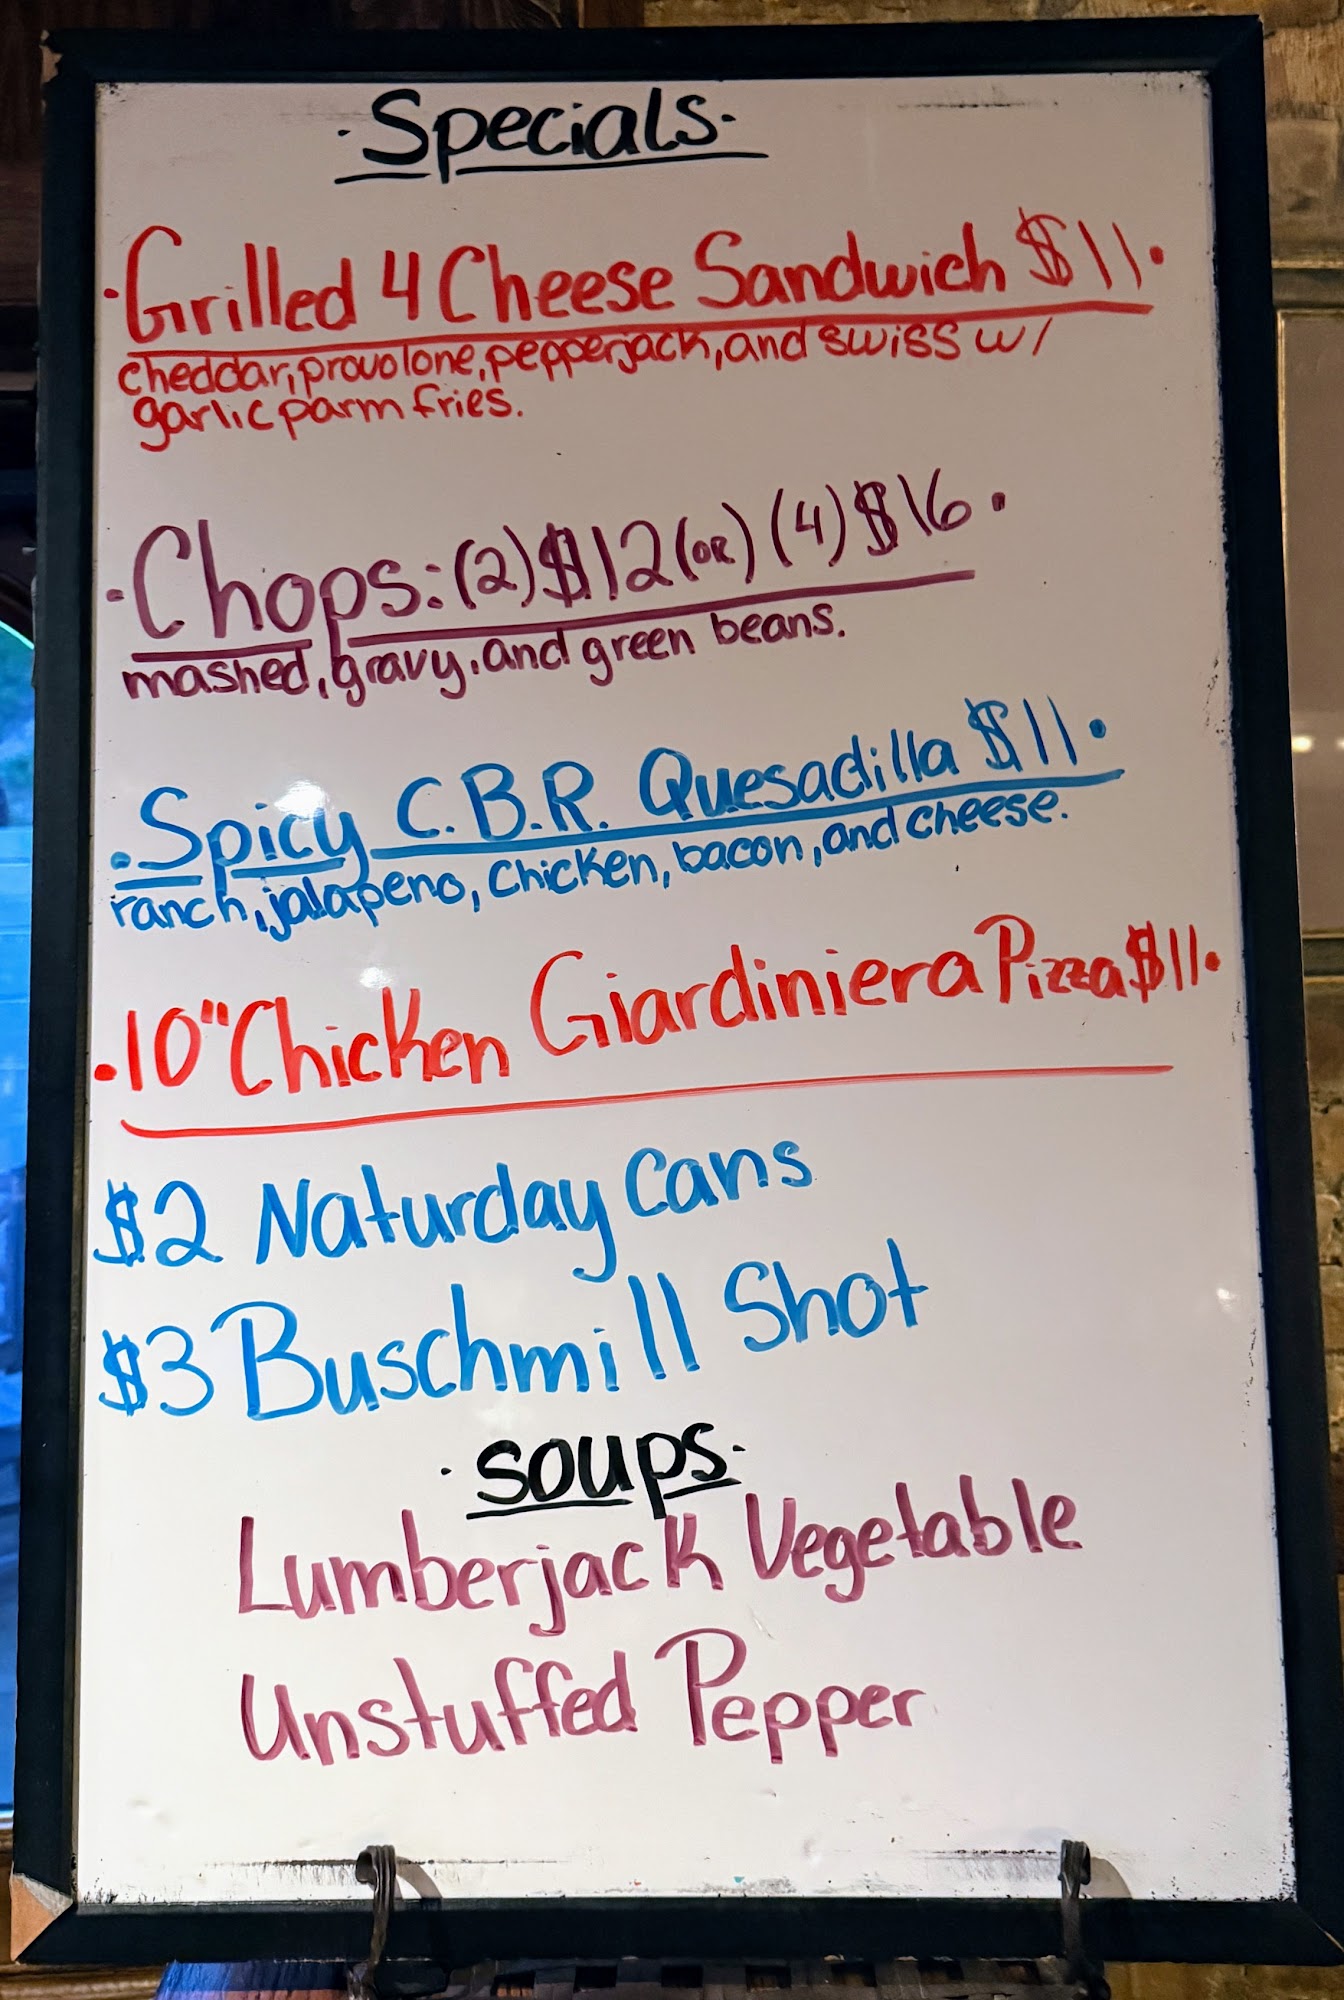 ·Specials·
·Grilled 4 Cheese Sandwich $11·
cheddar, provolone, pepperjack, and swiss w/
garlic parm fries.
·Chops: (2) $12 (OR) (4) $16·
mashed, gravy, and green beans.
·Spicy C.B.R. Quesadilla $11·
ranch, jalapeno, chicken, bacon, and cheese.
·10" Chicken Giardiniera Pizza $11·
$2 Naturday Cans
$3 Buschmill Shot
·Soups·
Lumberjack Vegetable
Unstuffed Pepper